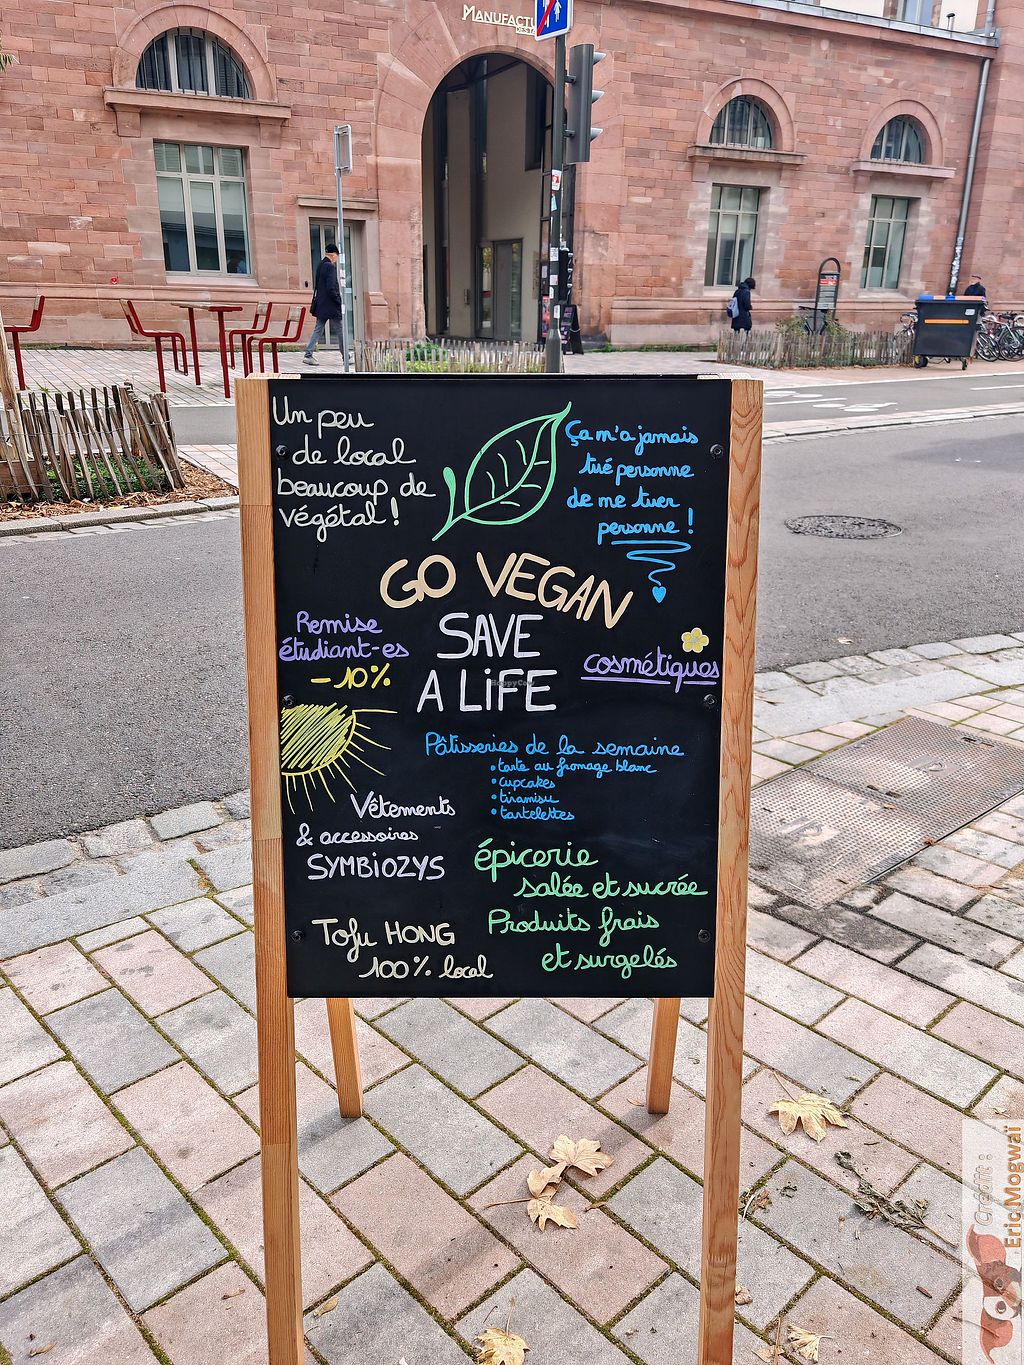 MANUFACTU
Un peu
de local
beaucoup de
végétal !
Ça m'a jamais
tué personne
de me tuer
personne !
GO VEGAN
SAVE
A LIFE
Remise
étudiant-es
-10%
cosmétiques
Pâtisseries de la semaine
• tarte au fromage blanc
• cupcakes
• tiramisu
• tartelettes
Vêtements
& accessoires
SYMBIOZYS
épicerie
salée et sucrée
Produits frais
et surgelés
Tofu HONG
100% local
HappyCow
Crédit :
Eric Mogwaï